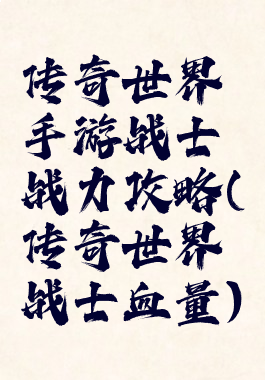 传奇世界
手游战士
战力攻略(
传奇世界
战士血量)